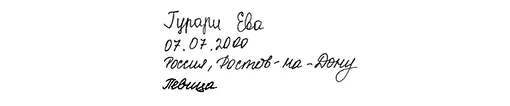 Гурари Ева
07.07.2000
Россия, Ростов-на-Дону
Певица